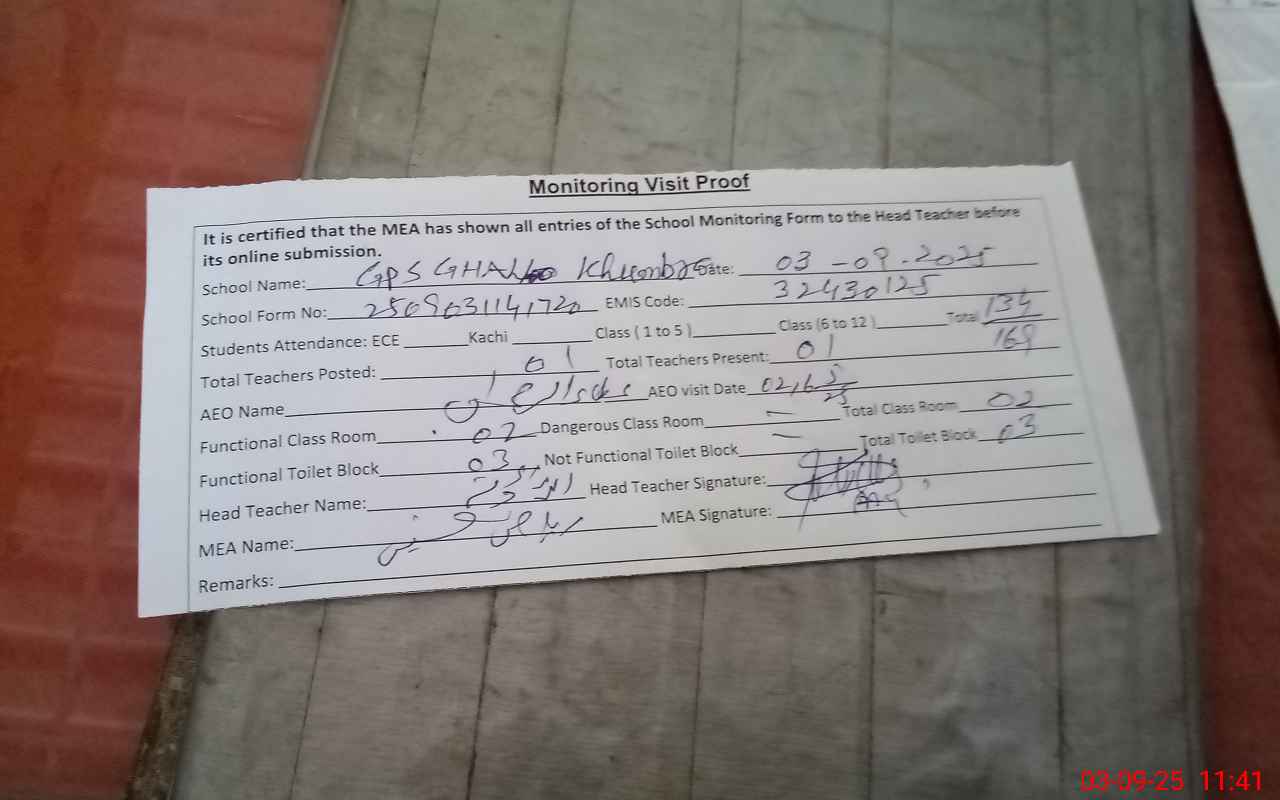 Monitoring Visit Proof
It is certified that the MEA has shown all entries of the School Monitoring Form to the Head Teacher before
its online submission.
School Name: GPS GHALLOO Date: 03-09.2025
School Form No: 2509031141720 EMIS Code: 32430125
Students Attendance: ECE Kachi Class ( 1 to 5 ) Class (6 to 12 ) Total 134
169
Total Teachers Posted: 01 Total Teachers Present: 01
AEO Name AEO visit Date
Functional Class Room 02 Dangerous Class Room — Total Class Room 02
Functional Toilet Block 03 Not Functional Toilet Block — Total Toilet Block 03
Head Teacher Name: Head Teacher Signature:
MEA Name: MEA Signature:
Remarks:
03-09-25 11:41